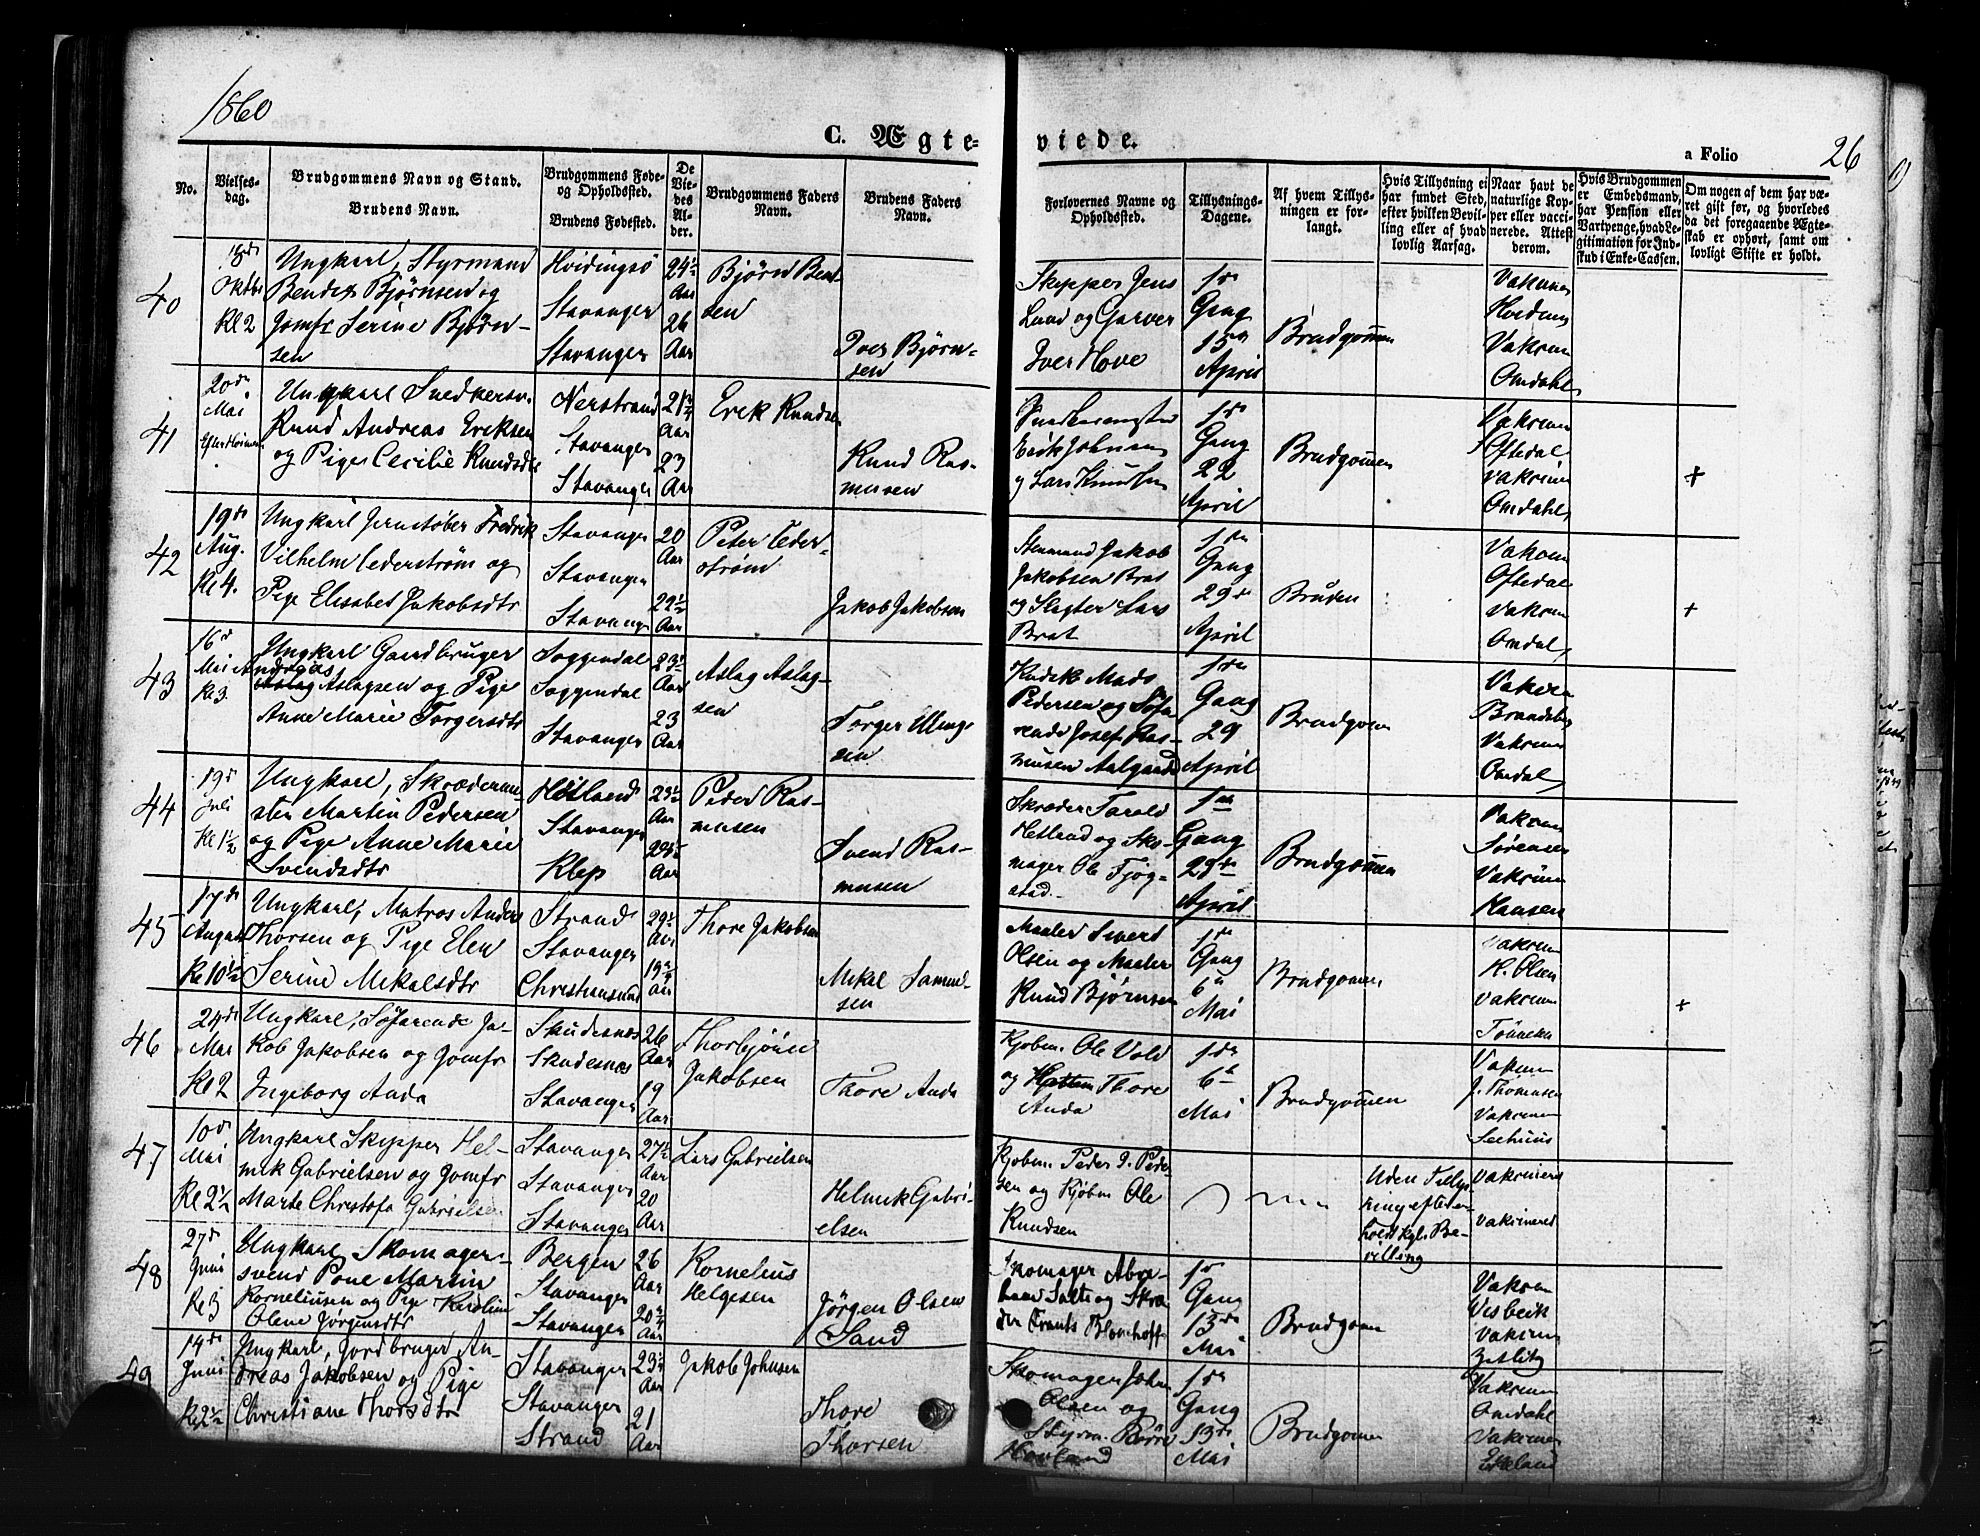 1860
C. Ægteviede.
a Folio 26
No.
Vielsesdag.
Brudgommens Navn og Stand.
Brudens Navn.
Brudgommens Føde- og Opholdssted.
Brudens Fødested.
De Viedes Alder.
Brudgommens Faders Navn.
Brudens Faders Navn.
Forlovernes Navne og Opholdssted.
Tillysnings-Dagene.
Af hvem Tillysningen er forlangt.
Hvis Tillysning ei har fundet Sted, efter hvilken Bevilling eller af hvad lovlig Aarsag.
Naar havt de naturlige Kopper eller vaccinerede. Attest derom.
Hvis Brudgommen er Embedsmand, har Pension eller Vartpenge, hvad Legitimation for Indskud i Enke-Cassen.
Om nogen af dem har været gift før, og hvorledes da det foregaaende Ægteskab er ophørt, samt om lovligt Skifte er holdt.
40
18de Oktbr Kl 2
Ungkarl, Styrmand
Bendix Bjørnsen og
Jomfr Serine Bjørn-
sen
Hvidingsö
Stavanger
Stavanger
24½ Aar
26 Aar
Bjørn Bent
sen
Iver Bjørn-
sen
Skipper Jens
Lund og Garver
Iver Hove
1ste Gang 15de April
Brudgommen
Vakcin
Vakcin
Omdahl
41
20de Mai
Ungkarl Snedkersv.
Knud Andreas Eriksen
og Pige Cecilie Knudsdtr
Nerstrand
Stavanger
Stavanger
23 Aar
Erik Knudsen
Knud Ras-
musen
Erik Johnsen
og Lars Knudsen
1ste Gang 22 April
Brudgommen
Vakcin
Oftedal
vakcin
Omdahl
+
42
19de Aug. Kl 4.
Ungkarl Jernstøber Fredrik
Vilhelm Cederstrøm og
Pige Elisabet Jakobsdtr
Stavanger
Stavanger
Stavanger
20 Aar
22½ Aar
Peter Ceder-
strøm
Jakob Jakobsen
Stenmand Jakob
Jakobsen Brat
og Slagter Lars
Brat
1ste Gang 29de April
Bruden
Vakcin
Oftedal
vakcin
Omdal
+
43
16de Mai Kl 3
Ungkarl Gaardbruger
Andreas
Aslagsen og Pige
Anne Marie Torgersdtr
Soggendal
Soggendal
Stavanger
23 Aar
Aslag Aslag-
sen
Torger
sen
Mads
Pedersen og Søfa
rende Josef Ras-
musen Aalgaard
1ste Gang 29 April
Brudgommen
Vakcin
Vakcin
Omdal
44
19de Juli Kl 1½
Ungkarl, Skrædersme-
ster Martin Pedersen
og Pige Anne Marie
Svendsdtr
Hetland
Stavanger
Klep
Peder Ras-
musen
Svend Ras-
musen
Skræder Tarald
Hetland og Sko-
mager Ole Tjøg-
stad.
1ste Gang 29de April
Brudgommen
Vakcin
Sørensen
Vakcin
Hansen
45
17de August Kl 10½
Ungkarl, Matros Anders
Thorsen og Pige Elen
Serine Mekalsdtr
Strand
Stavanger
Christiansund
Thore Jakobsen
Mikal Samuel-
sen
Maaler Sivert
Olsen og Maaler
Knud Bjørnsen
1ste Gang 6te Mai
Brudgommen
Vakcin
H. Olsen
vakcin
Tönnesen
+
46
24de Mai Kl 2
Ungkarl, Søfarende Ja-
kob Jakobsen og Jomfr
Ingeborg Anda
Skudesnæs
Skudesnæs
Stavanger
26 Aar
19 Aar
Thorbjörn
Jakobsen
Thore Anda
Kjøbm. Ole Vold
og Thore
Anda
1ste 6te Mai
Brudgommen
Vakcin
J. Thomsen
Vakcin
Seehuus
47
10de Mai Kl 2½
Ungkarl Skipper Hel-
mik Gabrielsen og Jomfr
Marte Christofa Gabrielsen
Stavanger
Stavanger
Stavanger
27½ Aar
20 Aar
Lars Gabrielsen
Helmik Gabri-
elsen
Kjøbm. Peder I. Peder-
sen og Kjøbm Ole
Knudsen
Uden Tillys
ning efter er-
hvervet kgl. Be-
villing
vakcineret
vakcineret
48
27de Juni Kl 3
Ungkarl Skomager-
svend Martin
Korneliusen og Pige Karoline
Olene Jørgensdtr
Bergen
Stavanger
Stavanger
26 Aar
Kornelius
Helgesen
Jörgen Olsen
Sand
Skomager Abra-
ham Salte og Skræ
der Frants Blomhoff
1ste Gang 13de Mai
Brudgommen
Vakcin
Wisbeck
vakcin
Zetlitz
49
14de Juni Kl 2½
Ungkarl, Jordbruger An-
dreas Jakobsen og Pige
Christiane Thorsdtr
Stavanger
Stavanger
Strand
21 Aar
Jakob Johnsen
Thore
Thorsen
Skomager John
Olsen og
Styrm. Børre
Hovland
1ste Gang 13de Mai
Brudgommen
Vakcin
Omdahl
Vakcin
Eikeland